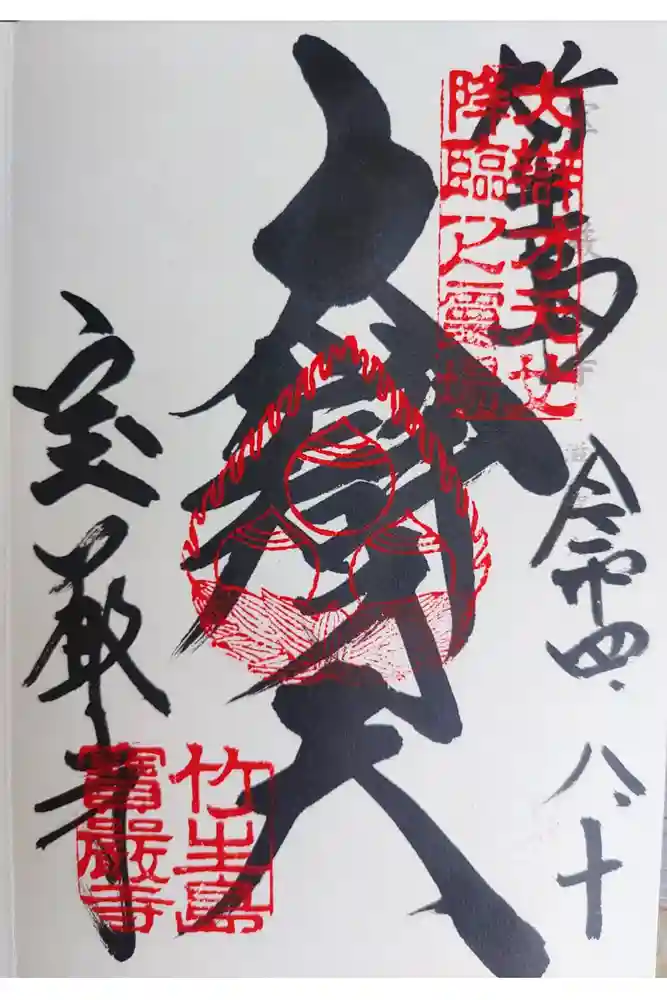 竹生島
令和四.八.十
大辯才天女
降臨之靈場
大辯才天
宝厳寺
竹生島
寶嚴寺